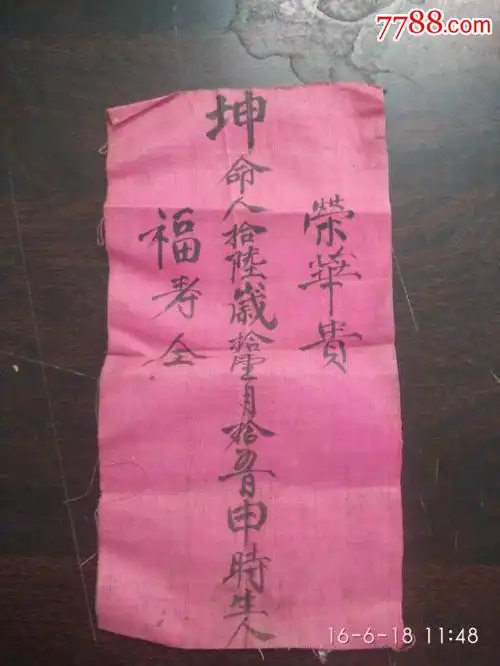 7788.com
榮華貴
坤命人拾陸歲拾壹月拾五日申時生人
福壽全
16-6-18 11:48